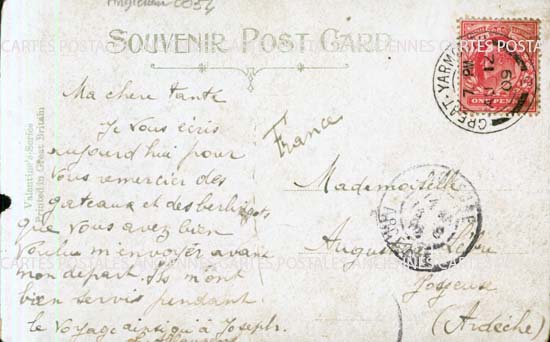 Angleterre 0054
SOUVENIR POST CARD
GREAT-YARMO
7 PM
21
09
ONE PENNY
Valentine's Series
Printed in Great Britain
Ma chere tante
Je vous écris
aujourd'hui pour
vous remercier des
gateaux et des berlingots
que vous avez bien
voulu m'envoyer avant
mon départ. Ils m'ont
bien servis pendant
le voyage ainsi qu'à Joseph.
France
Mademoiselle
Joyeuse
(Ardèche)
CARTES POSTALES ANCIENNES
CARTES POSTALES ANCIENNES